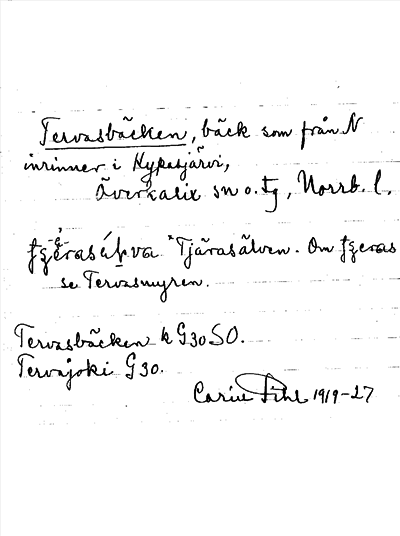 Tervasbäcken, bäck som från N
inrinner i Hypasjärvi,
Överkalix sn o. tg, Norrb. l.
"Tjärasälven. Om
se Tervasmyren.
Tervasbäcken k G30SO.
Tervajoki G30.
Carin Pihl 1919-27